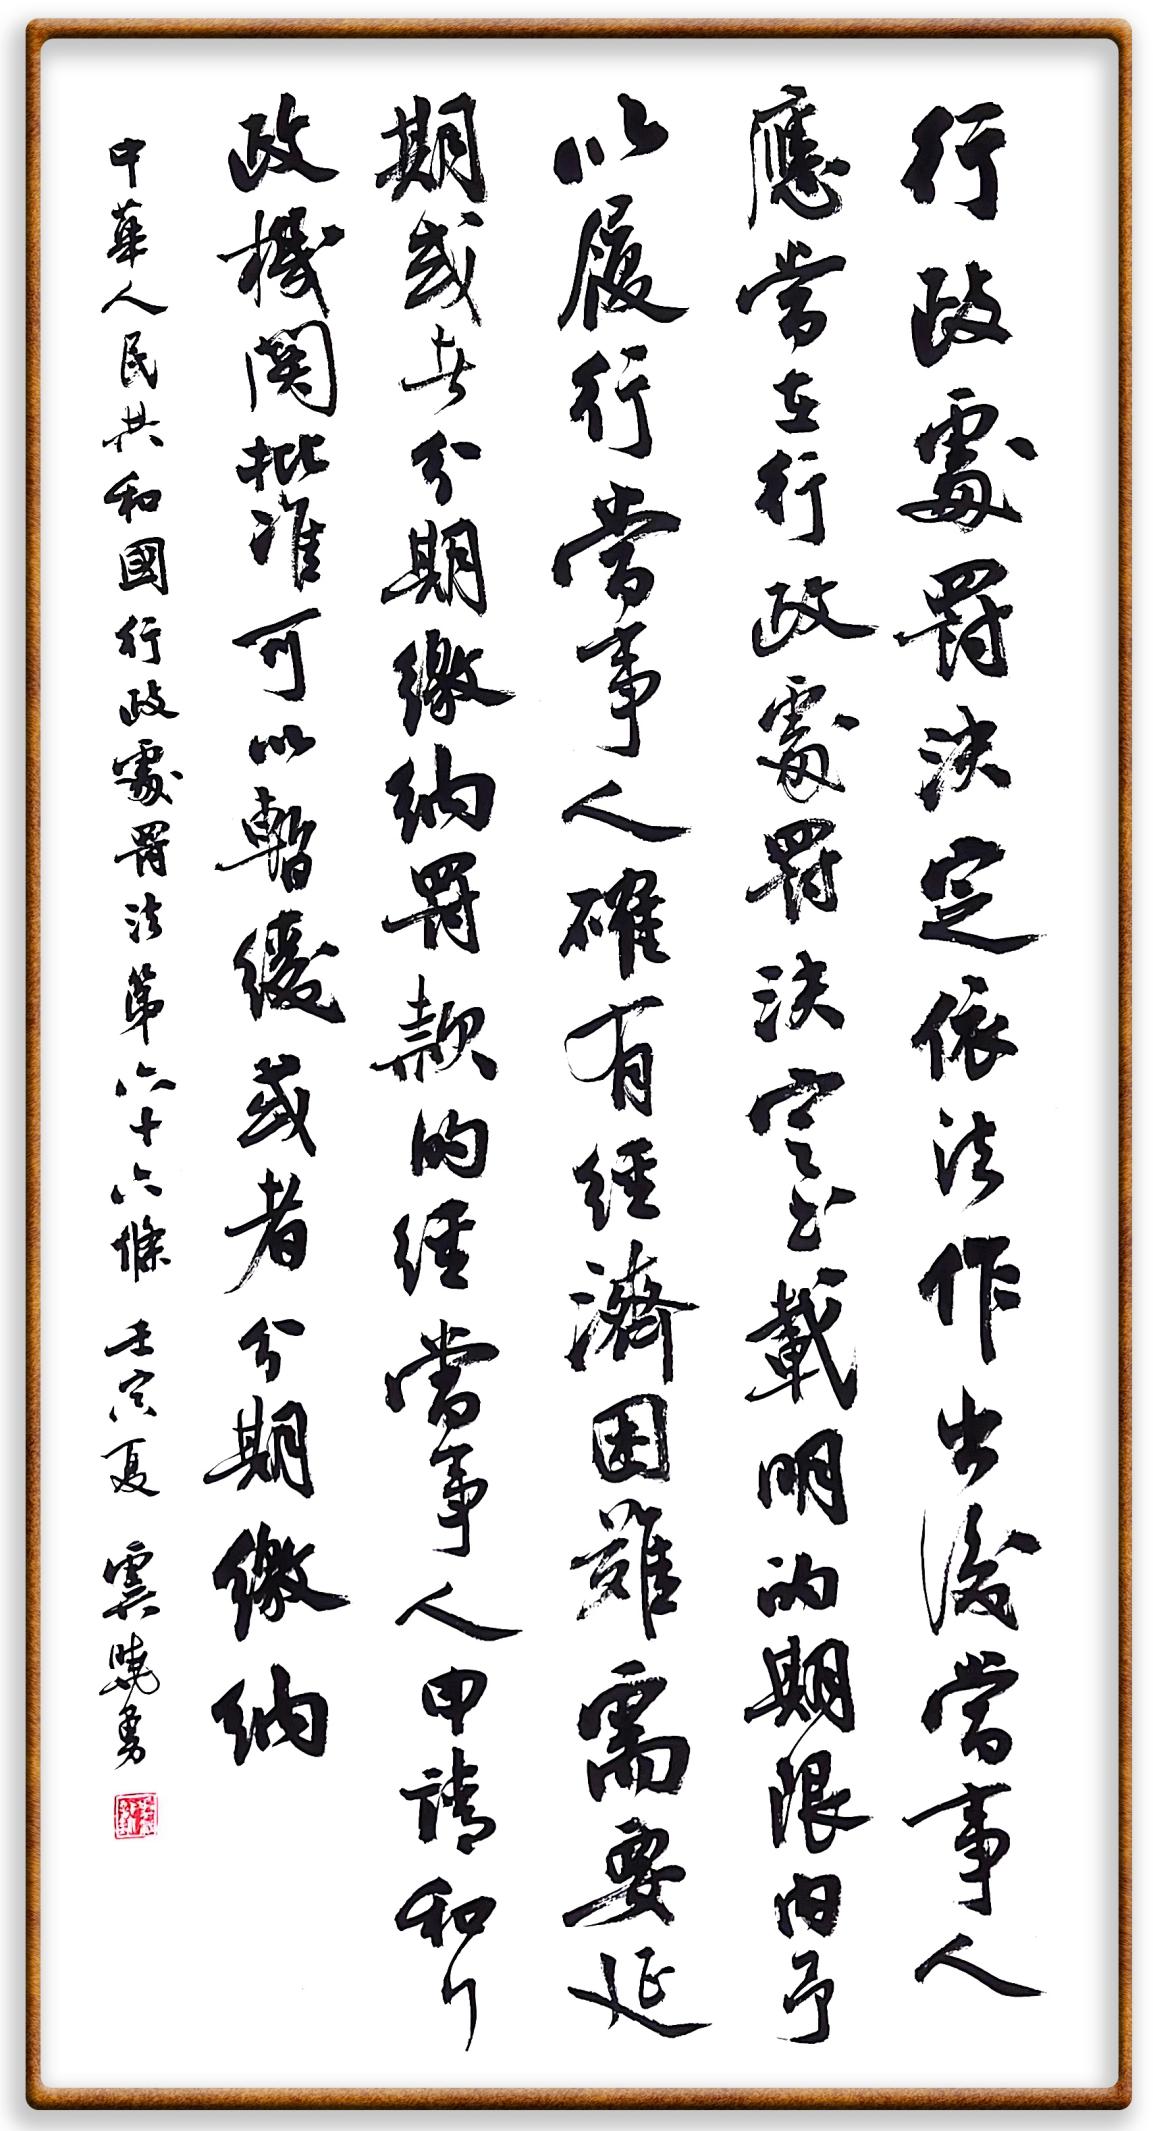 行政處罰決定依法作出後當事人
應當在行政處罰決定書載明的期限內予
以履行當事人確有經濟困難需要延
期或者分期繳納罰款的經當事人申請和行
政機関批准可以暫緩或者分期繳納
中華人民共和國行政處罰法第六十六條 壬寅夏 曉勇